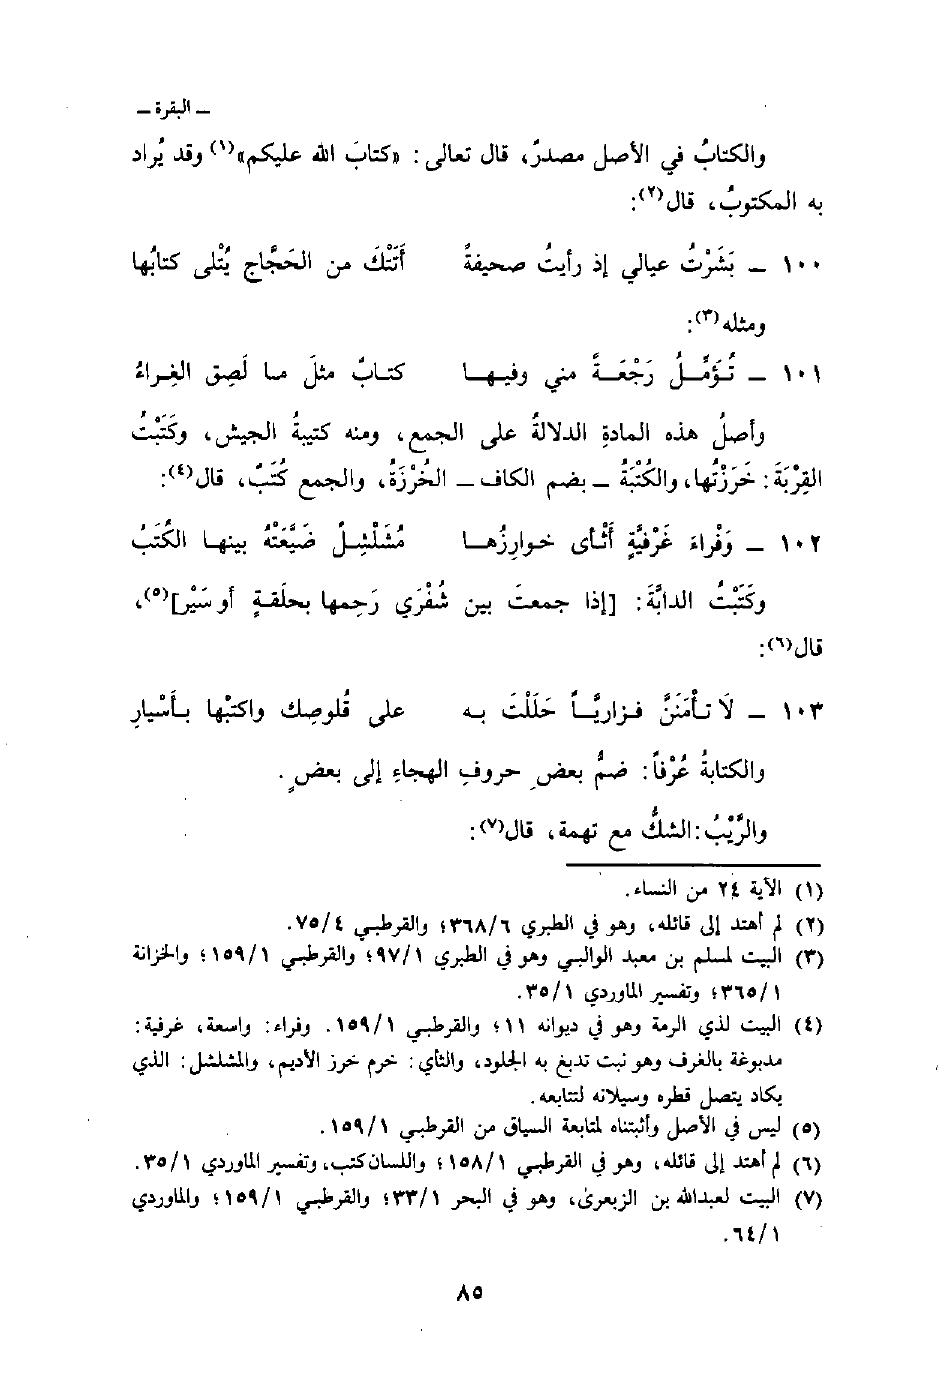 ـ البقرة ـ
والكتابُ في الأصل مصدرٌ، قال تعالى: «كتابَ الله عليكم»(١) وقد يُراد
به المكتوبُ، قال(٢):
١٠٠ ـ بَشَرْتُ عيالي إذ رأيتُ صحيفةً أَتَتْكَ من الحَجَّاج يُتْلى كتابُها
ومثله(٣):
١٠١ ـ تُؤَمِّـلُ رَجْعَـةً مني وفيهـا كتـابٌ مثلَ مـا لَصِق الغِـراءُ
وأصلُ هذه المادةِ الدلالةُ على الجمع، ومنه كتيبةُ الجيش، وكَتَبْتُ
القِرْبَةَ: خَرَزْتُها، والكُتْبَةُ ـ بضم الكاف ـ الخُرْزَةُ، والجمع كُتَبٌ، قال(٤):
١٠٢ ـ وَفْراءَ غَرْفيَّةٍ أَثْأى خوارِزُهـا مُشَلْشِلٌ ضَيَّعَتْهُ بينهـا الكُتَبُ
وكَتَبْتُ الدابَّةَ: [إذا جمعتَ بين شُفْرَي رَحِمها بحلَقةٍ أو سَيْر](٥)،
قال(٦):
١٠٣ ـ لَا تـأمَنَنَّ فـزاريَّـاً حَلَلْتَ بـه على قُلوصِك واكتبْها بـأَسْيارِ
والكتابةُ عُرْفاً: ضمُّ بعضِ حروفِ الهجاءِ إلى بعضٍ.
والرَّيْبُ: الشكُّ مع تهمة، قال(٧):
(١) الآية ٢٤ من النساء.
(٢) لم أهتد إلى قائله، وهو في الطبري ٣٦٨/٦؛ والقرطبي ٧٥/٤.
(٣) البيت لمسلم بن معبد الوالبي وهو في الطبري ٩٧/١؛ والقرطبي ١٥٩/١؛ والخزانة
٣٦٥/١؛ وتفسير الماوردي ٣٥/١.
(٤) البيت لذي الرمة وهو في ديوانه ١١؛ والقرطبي ١٥٩/١. وفراء: واسعة، غرفية:
مدبوغة بالغرف وهو نبت تدبغ به الجلود، والثأي: خرم خرز الأديم، والمشلشل: الذي
يكاد يتصل قطره وسيلانه لتتابعه.
(٥) ليس في الأصل وأثبتناه لمتابعة السياق من القرطبي ١٥٩/١.
(٦) لم أهتد إلى قائله، وهو في القرطبي ١٥٨/١؛ واللسان كتب، وتفسير الماوردي ٣٥/١.
(٧) البيت لعبدالله بن الزبعرى، وهو في البحر ٣٣/١؛ والقرطبي ١٥٩/١؛ والماوردي
٦٤/١.
٨٥